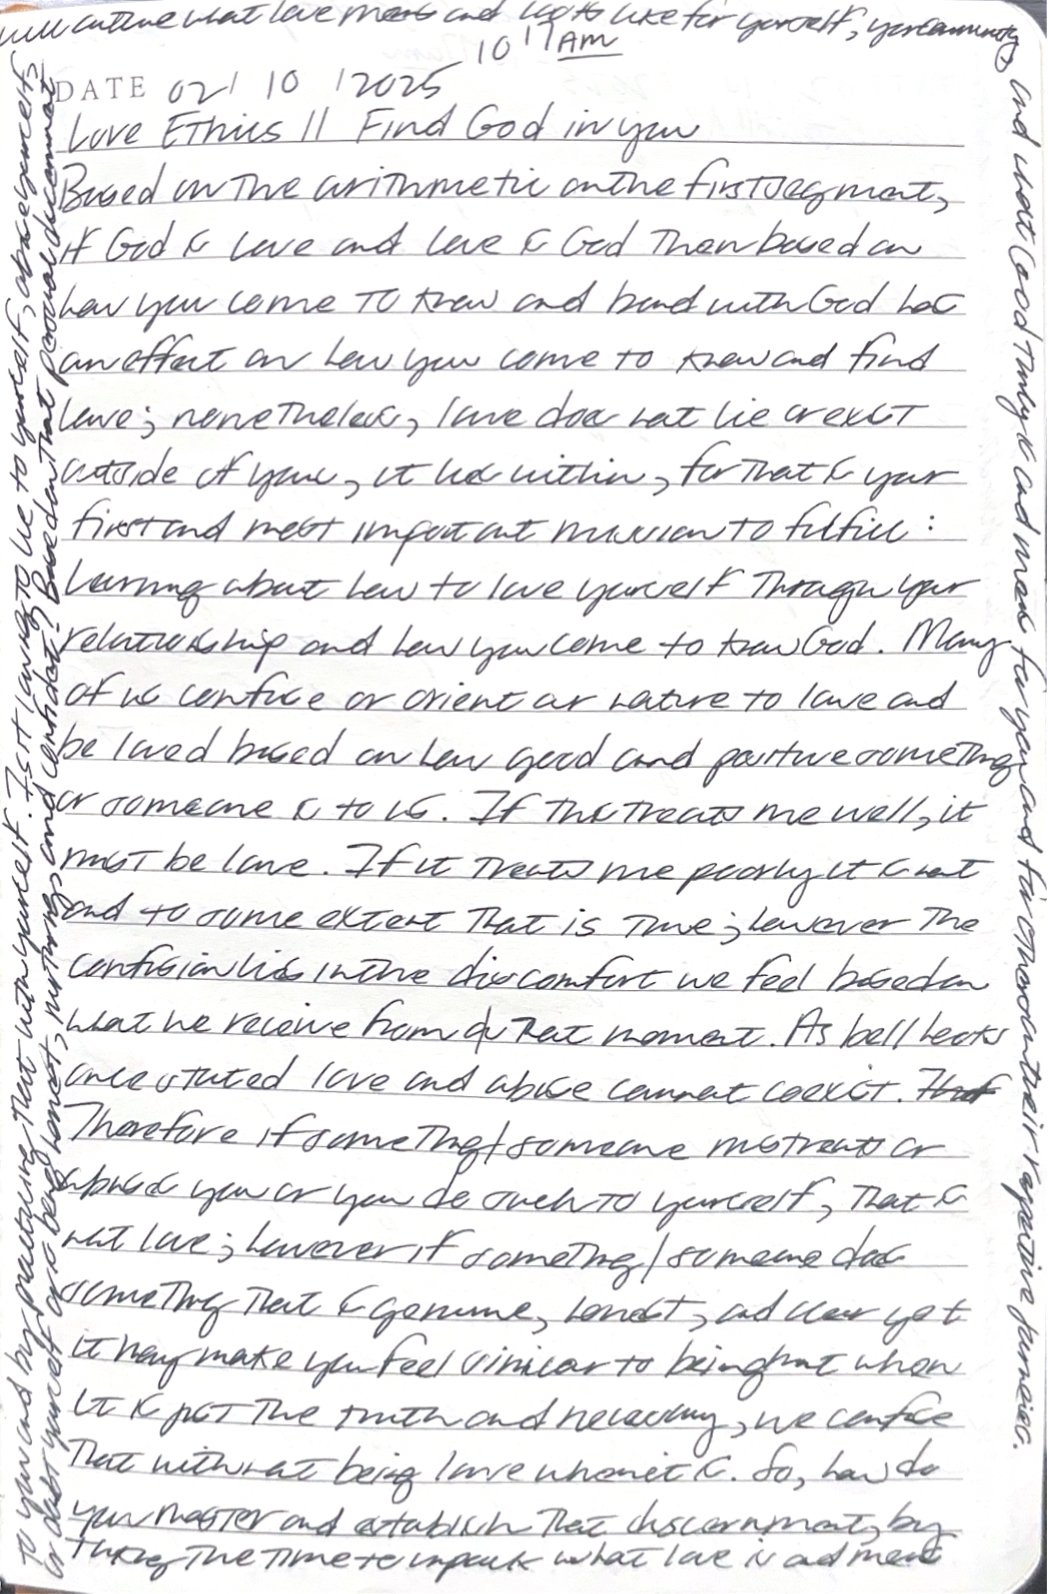 10 17 AM
DATE 02/ 10 /2025
Love Ethics || Find God in you
Based on the arithmetic on the first segment,
if God is love and love is God then based on
how you come to know and bond with God has
an effect on how you come to know and find
love; nonetheless, love does not lie or exist
outside of you, it lies within, for that is your
first and most important mission to fulfill:
Learning about how to love yourself through your
relationship and how you come to know God. Many
of us confuse or orient our nature to love and
be loved based on how good and positive something
or someone is to us. If this treats me well, it
must be love. If it treats me poorly it is not
and to some extent that is true; however the
confusion lies in the discomfort we feel based on
what we receive from that moment. As bell hooks
once stated love and abuse cannot coexist. That
Therefore if something/someone mistreats or
abuses you or you do such to yourself, that is
not love; however if something/someone does
something that is genuine, honest, and clear yet
it may make you feel similar to being hurt when
it is just the truth and necessary, we confuse
that with not being love when it is. So, how do
you master and establish that discernment, by
taking the time to unpack what love is and means
to you and by practicing that with yourself. Is it loving to lie to yourself, abuse yourself,
or doubt yourself or is being honest, nurturing, and confident? Based on that personal discernment
will outline what love means and looks like for yourself, your community,
and what God truly is and means for you and for others on their respective journeys.